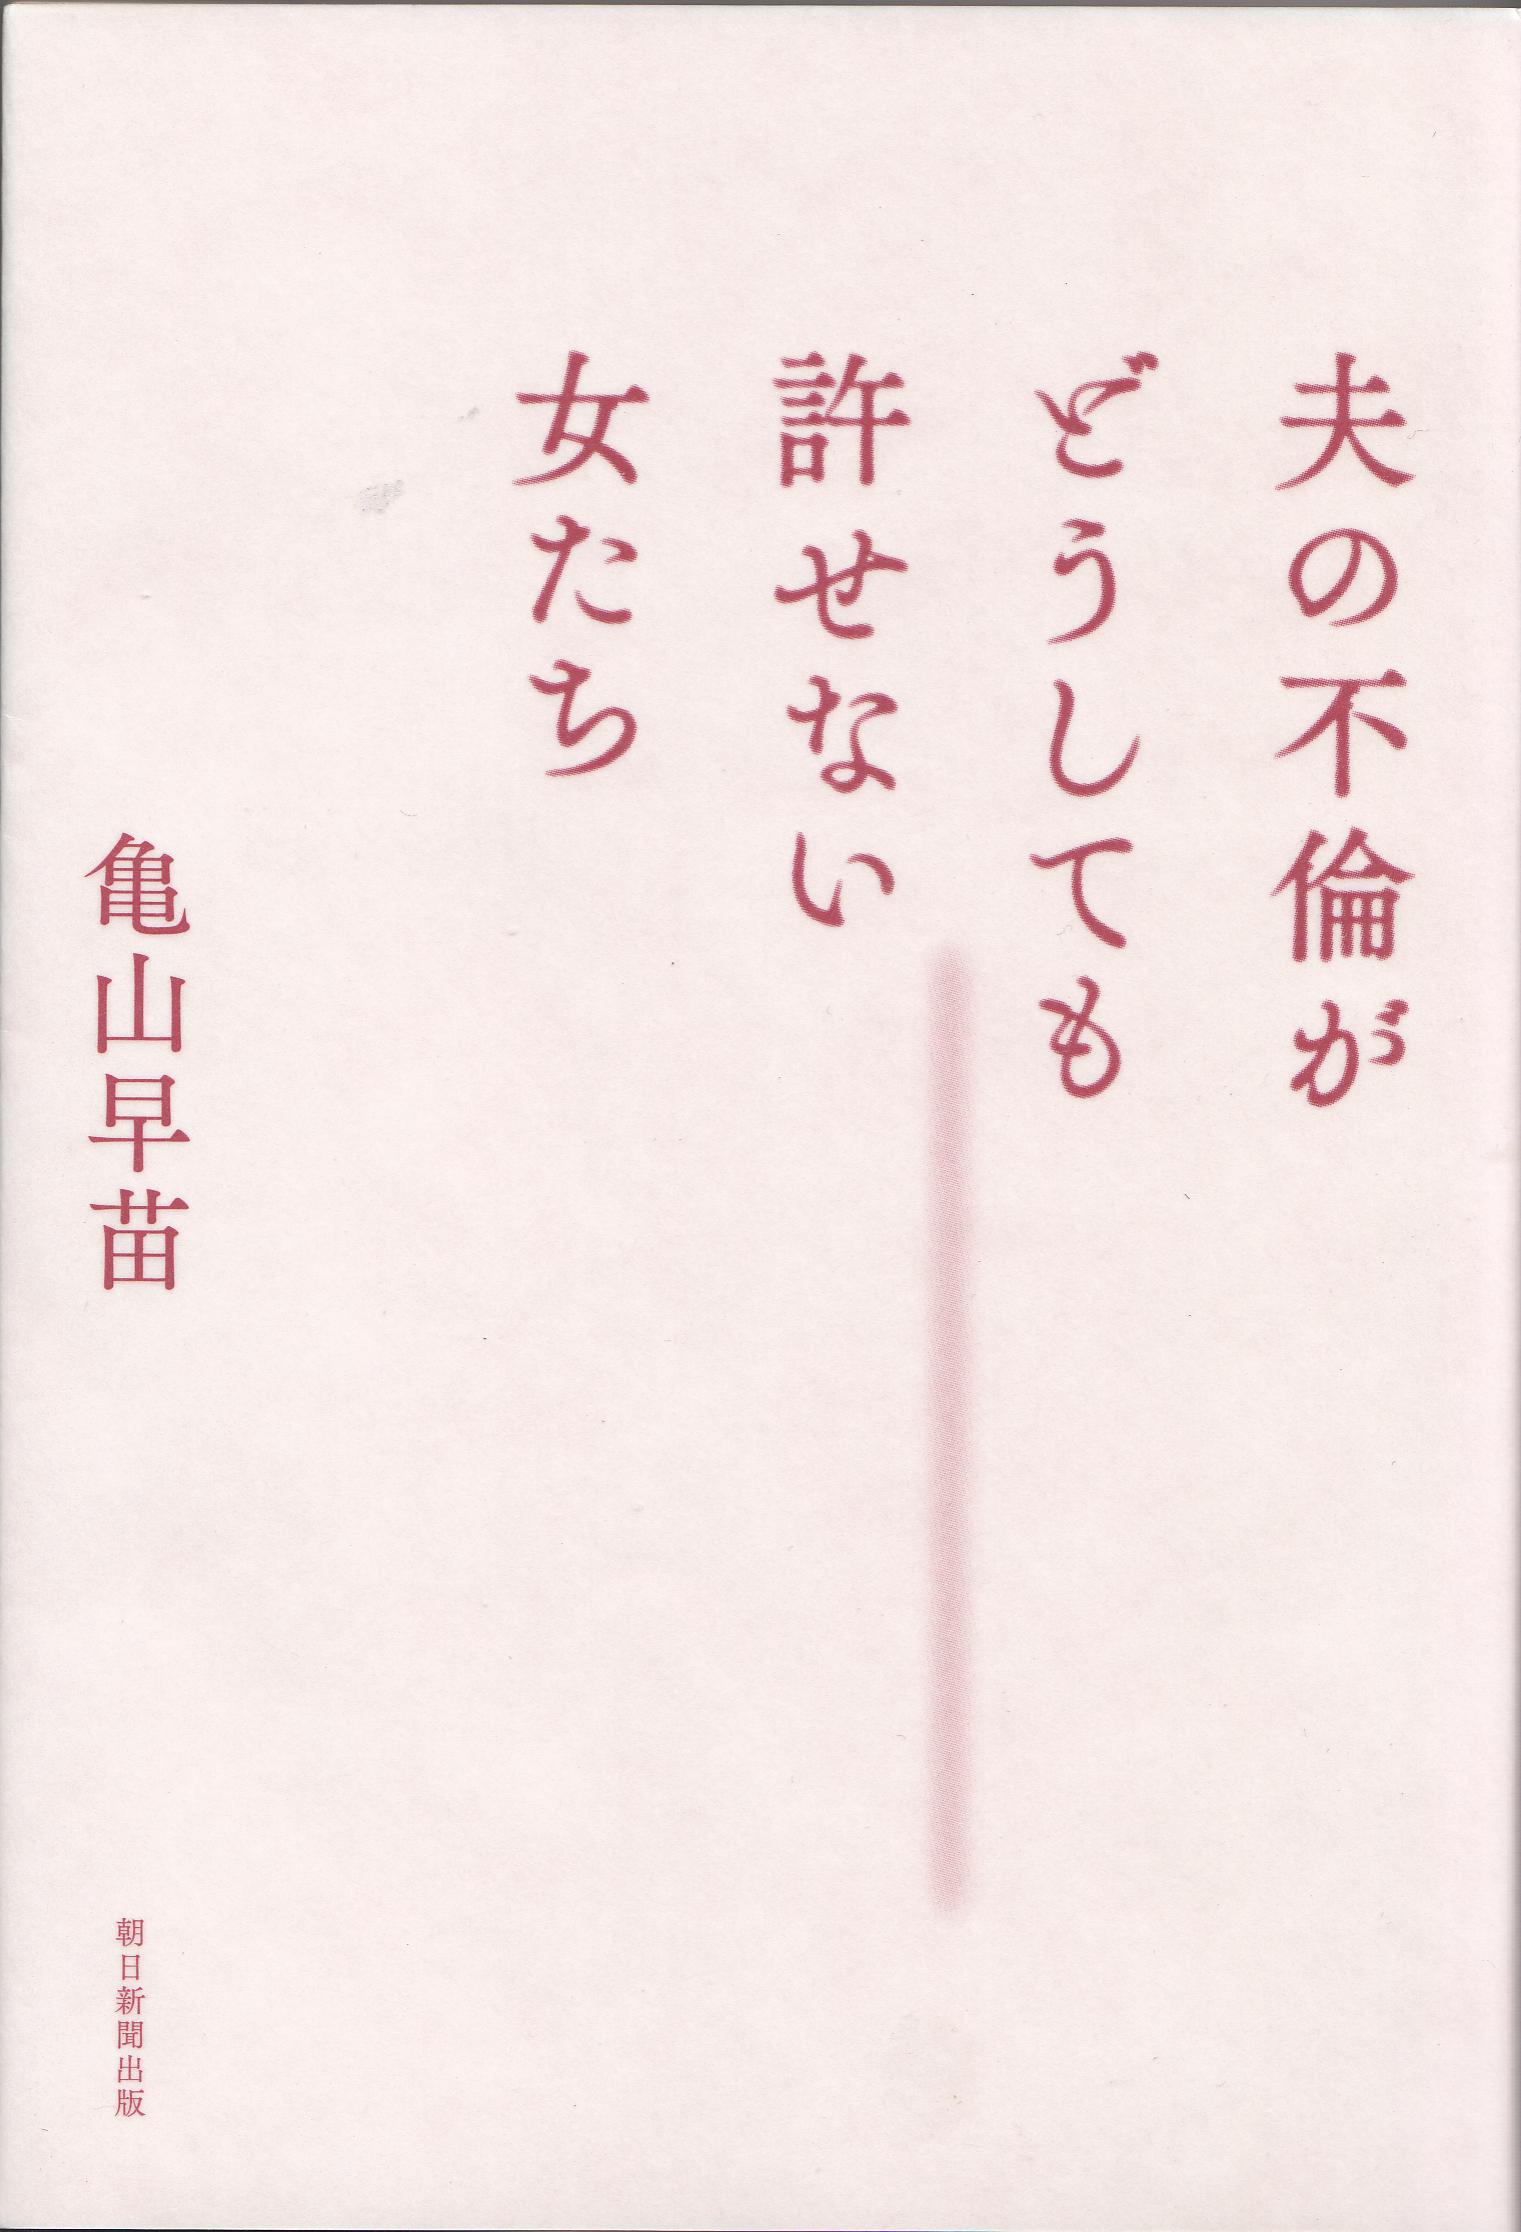 夫の不倫が
どうしても
許せない
女たち
亀山早苗
朝日新聞出版